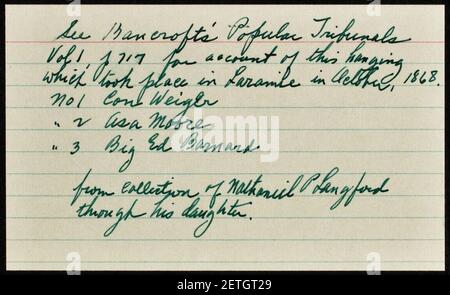 See Bancroft's Popular Tribunals
Vol 1, p 717 for account of this hanging
which took place in Laramie in October, 1868.
No 1 Con Weigler
" 2 Asa Moore
" 3 Big Ed Barnard
from collection of Nathaniel P Langford
through his daughter.
alamy
Image ID: 2ETGT29
www.alamy.com